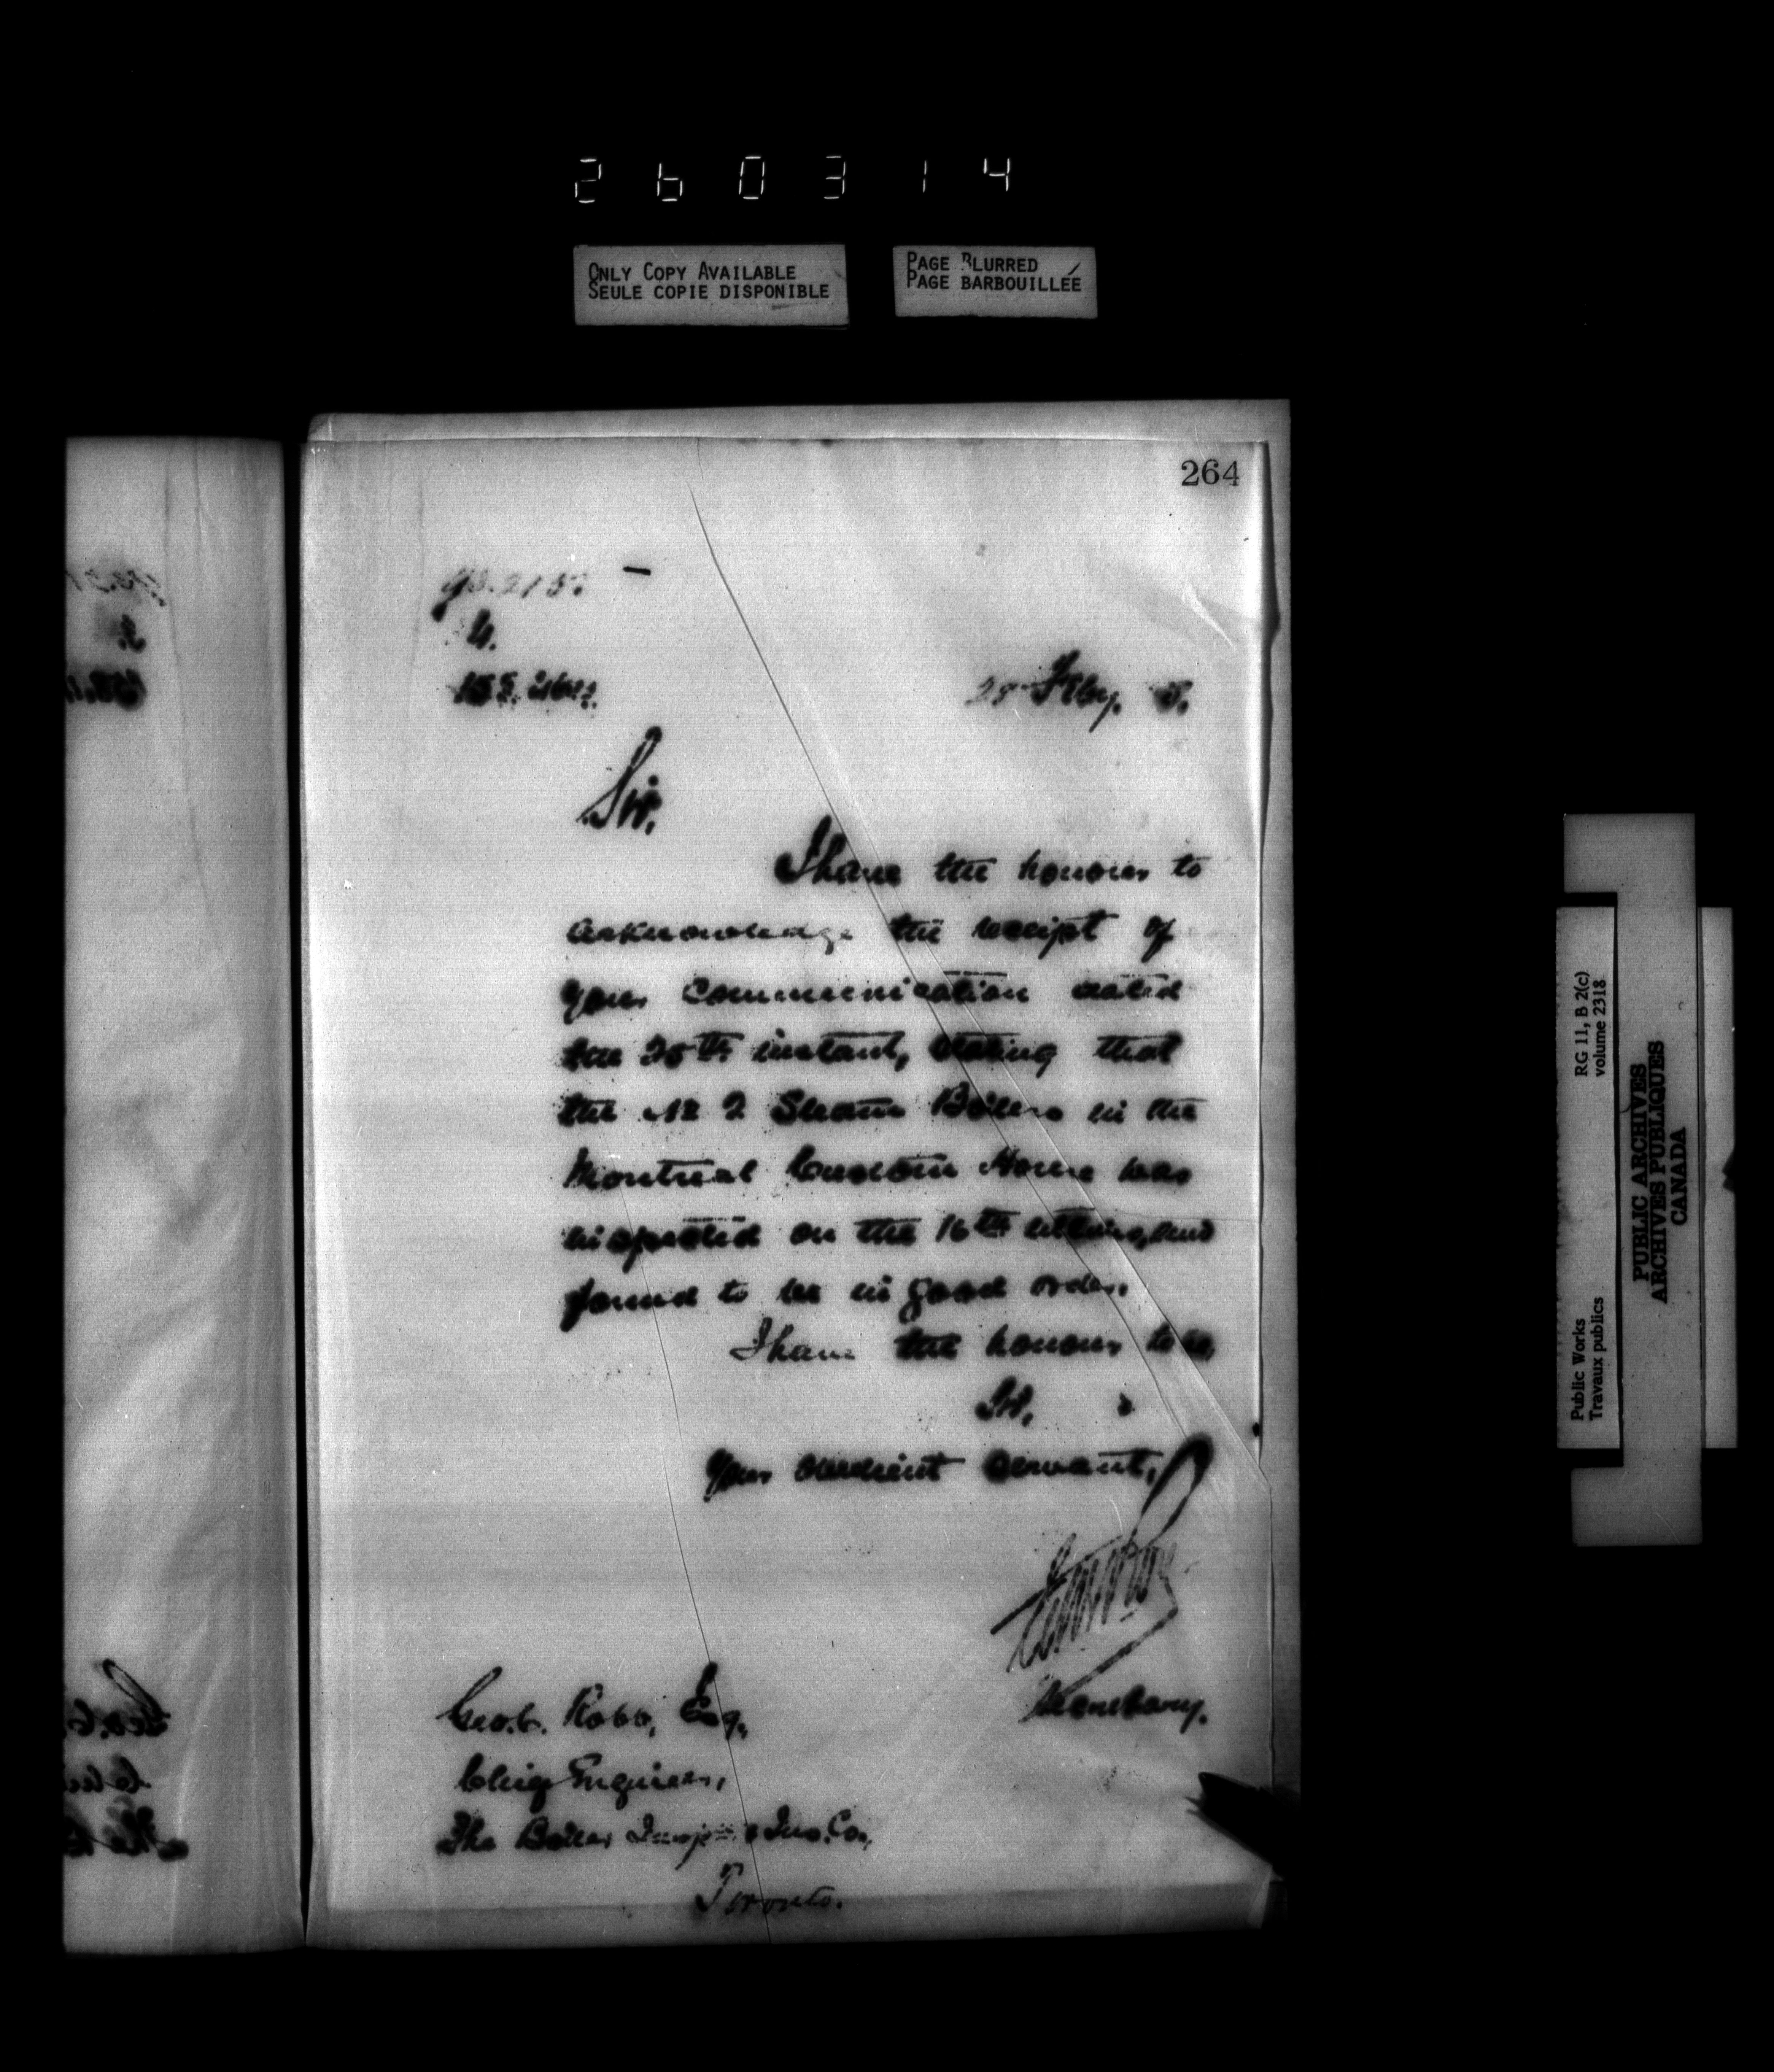 260314
ONLY COPY AVAILABLE
SEULE COPIE DISPONIBLE
PAGE BLURRED
PAGE BARBOUILLÉE
264
28 Feby. 5.
Sir,
I have the honour to
acknowledge the receipt of
your communication dated
the 25th instant, stating that
the No 2 Steam Boiler in the
Montreal Custom House was
inspected on the 16th idem, and
found to be in good order.
I have the honour to be,
Sir,
Your obedient servant,
Secretary.
Geo. C. Robb, Esq,
Chief Engineer,
The Boiler Insp & Ins. Co.,
Toronto.
Public Works RG 11, B 2(c)
Travaux publics volume 2318
PUBLIC ARCHIVES
ARCHIVES PUBLIQUES
CANADA